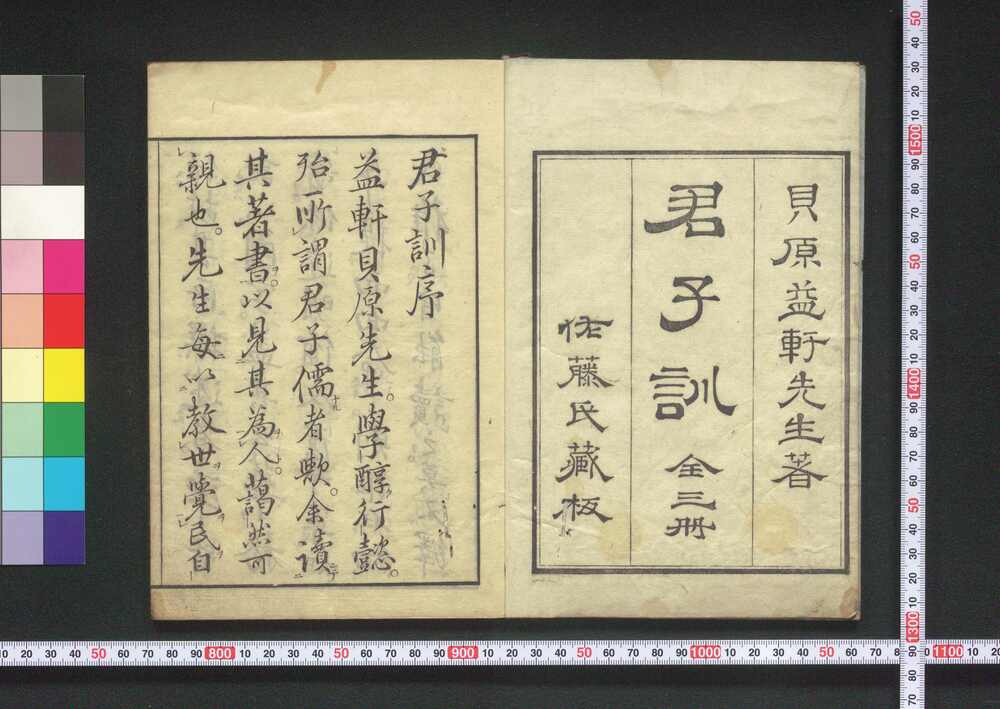 貝原益軒先生著
君子訓 全三冊
佐藤氏藏板
君子訓序
益軒貝原先生。學醇行懿。
殆所謂君子儒者歟。余讀
其著書。以見其為人。藹然可
親也。先生每以教世覺民自